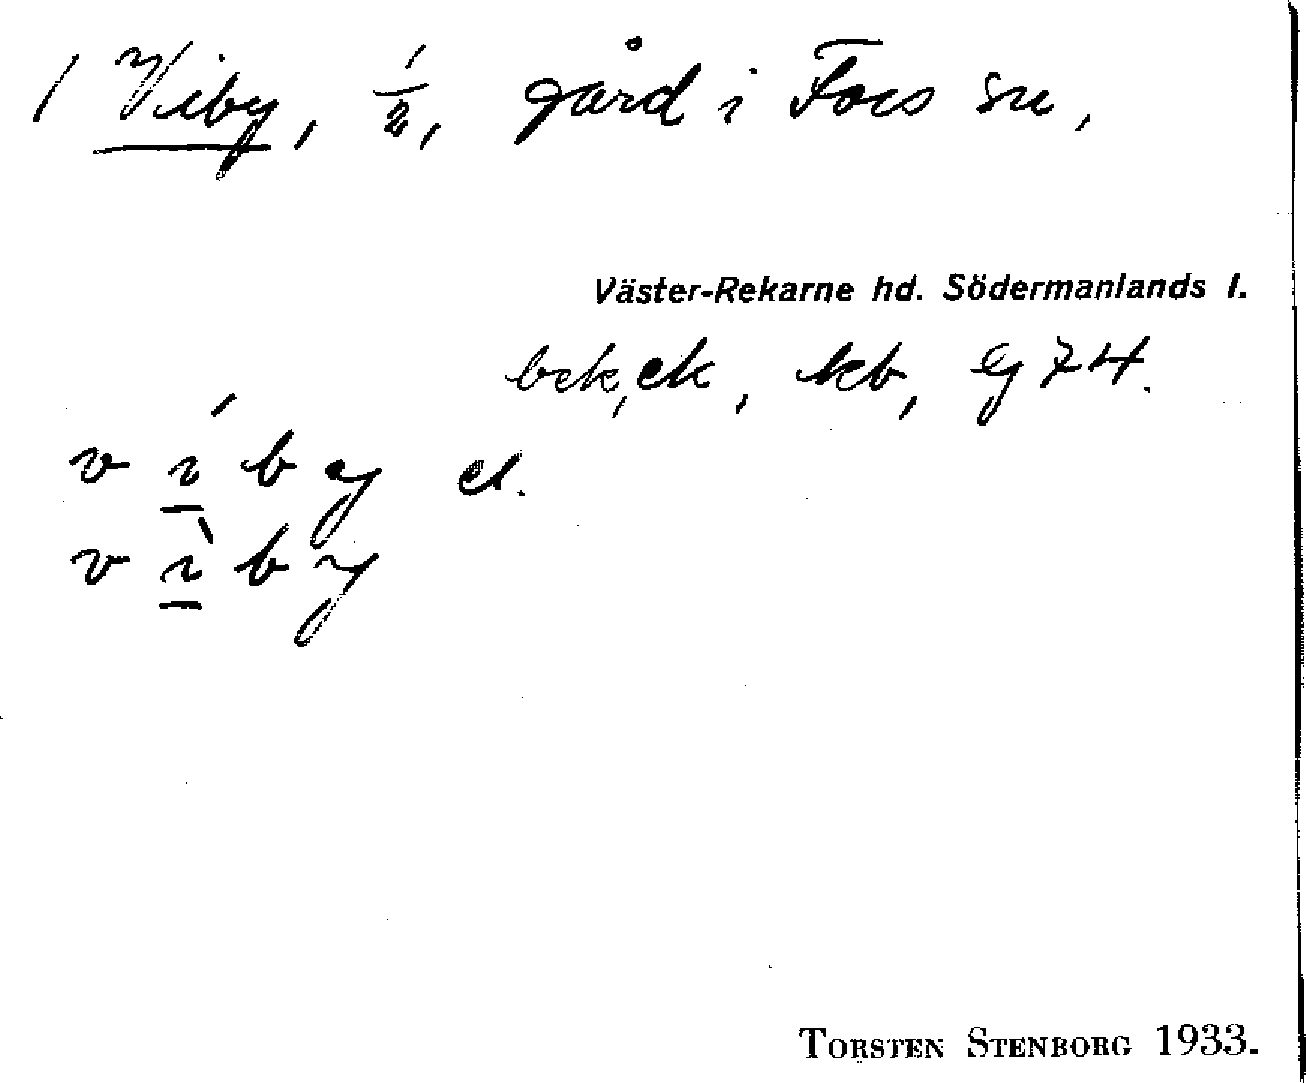 1 Viby, 1/2, gård i Fors sn,
Väster-Rekarne hd. Södermanlands l.
bek, ek, kb, Eg 74.
v í b y el.
v ì b y
TORSTEN STENBORG 1933.